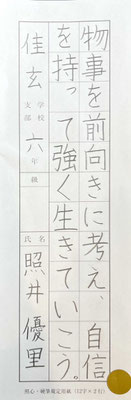 物事を前向きに考え、自信
を持って強く生きていこう。
佳玄
支部
学校
六年
級
氏名
照井優里
硬心・硬筆規定用紙(12字×2行)